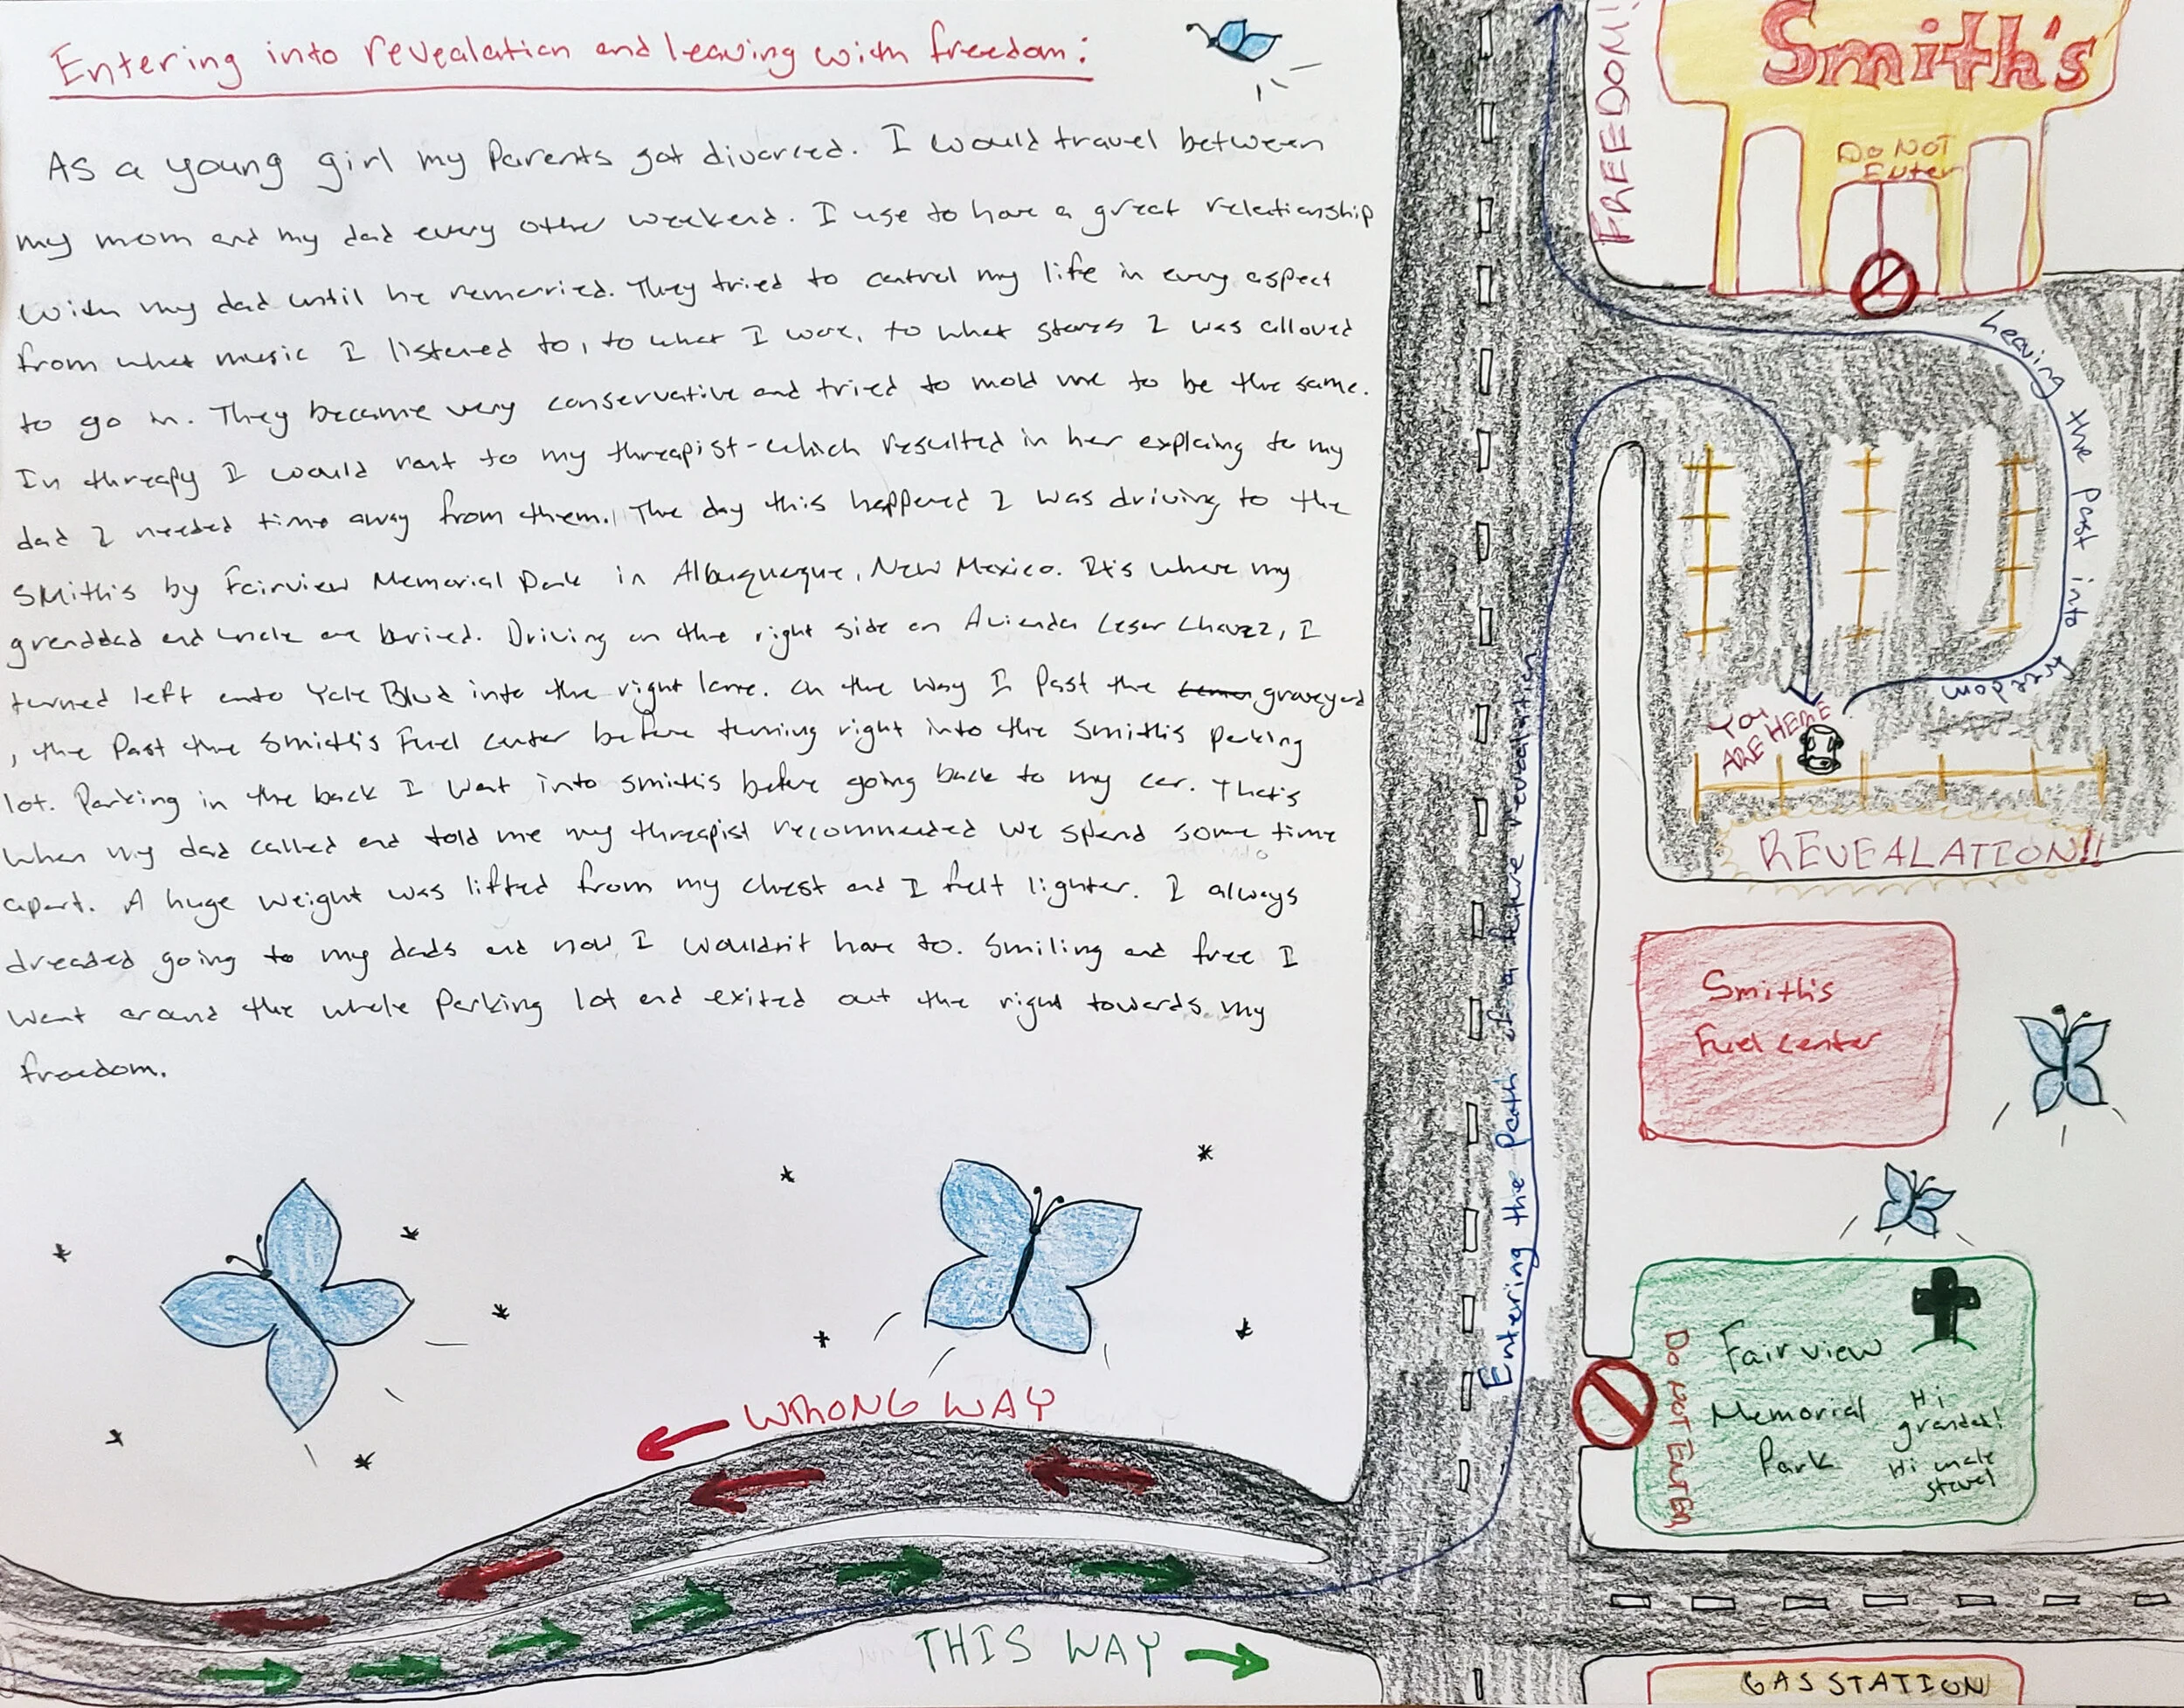 Entering into revealation and leaving with freedom:
As a young girl my parents got divorced. I would travel between
my mom and my dad every other weekend. I use to have a great relationship
with my dad until he remarried. They tried to control my life in every aspect
from what music I listened to, to what I wore, to what stores I was allowed
to go in. They became very conservative and tried to mold me to be the same.
In threapy I would rant to my threapist-which resulted in her explaing to my
dad I needed time away from them. The day this happened I was driving to the
Smith's by Fairview Memorial Park in Albuquerque, New Mexico. It's where my
granddad and uncle are buried. Driving on the right side on Avienda Cesar Chavez, I
turned left onto Yale Blvd into the right lane. On the way I past the graveyard
, the past the Smith's Fuel center before turning right into the Smith's parking
lot. Parking in the back I went into smith's before going back to my car. That's
when my dad called and told me my threapist recommended we spend some time
apart. A huge weight was lifted from my chest and I felt lighter. I always
dreaded going to my dads and now I wouldn't have to. Smiling and free I
went around the whole parking lot and exited out the right towards my
freedom.
FREEDOM!
Smith's
DO NOT
Enter
leaving the past into freedom
YOU
ARE HERE
REVEALATION!!
Entering the path of a future revealation
Smith's
Fuel center
DO NOT ENTER
Fairview
Memorial
Park
Hi
grandad!
Hi uncle
steve!
WRONG WAY
THIS WAY
GAS STATION